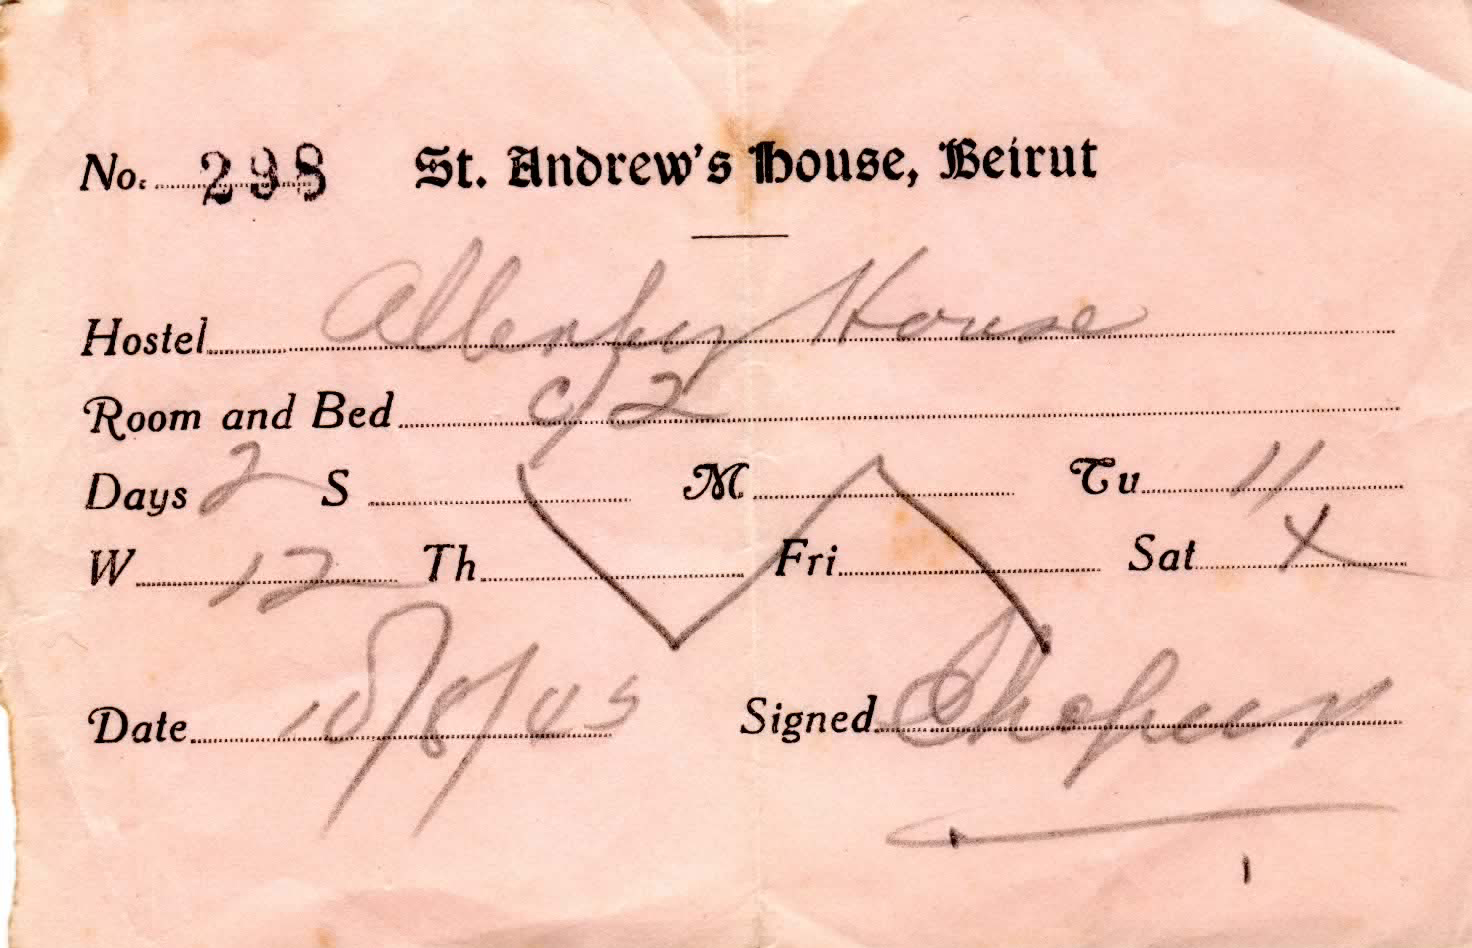 No. 298 St. Andrew's House, Beirut
Hostel Allenby House
Room and Bed C/2
Days 2 S M Tu 11
W 12 Th Fri Sat X
Date 10/8/45 Signed